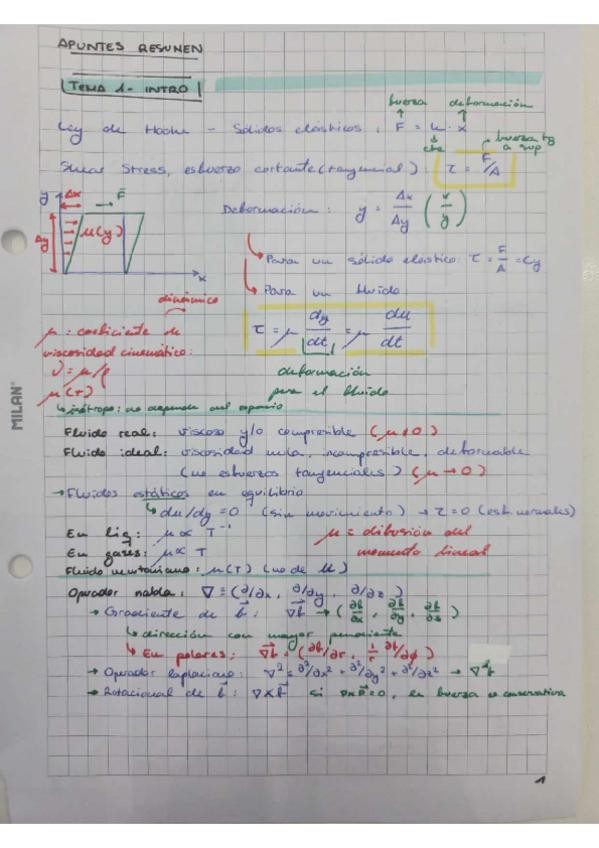 APUNTES RESUMEN
TEMA 1- INTRO
fuerza deformación
Ley de Hooke - Sólidos elásticos: F = k · x
cte
fuerza tg a sup
Shear Stress, esfuerzo cortante (tangencial): τ = F/A
y Δx F
Δy μ(y)
x
Deformación: y = Δx/Δy (x/y)
Para un sólido elástico: τ = F/A = Cy
Para un fluido
τ = μ dy/dt = μ du/dt
deformación
para el fluido
dinámico
μ: coeficiente de
viscosidad cinemático:
ν = μ/ρ
μ(T)
↳ isótropo: no depende del espacio
Fluido real: viscoso y/o compresible (μ≠0)
Fluido ideal: viscosidad nula, incompresible, deformable
(no esfuerzos tangenciales) (μ → 0)
→ Fluidos estáticos en equilibrio
↳ du/dy = 0 (sin movimiento) → τ = 0 (esf. normales)
En liq: μ ∝ T⁻¹
μ = difusión del
momento lineal
En gases: μ ∝ T
Fluido newtoniano: μ(T) (no de u)
Operador nabla: ∇ ≡ (∂/∂x, ∂/∂y, ∂/∂z)
→ Gradiente de f: ∇f → (∂f/∂x, ∂f/∂y, ∂f/∂z)
↳ dirección con mayor pendiente
↳ En polares: ∇f = (∂f/∂r, 1/r ∂f/∂φ)
→ Operador laplaciano: ∇² = ∂²/∂x² + ∂²/∂y² + ∂²/∂z² → ∇²f
→ Rotacional de f: ∇×F si ∇×F=0, la fuerza es conservativa
1
MILAN